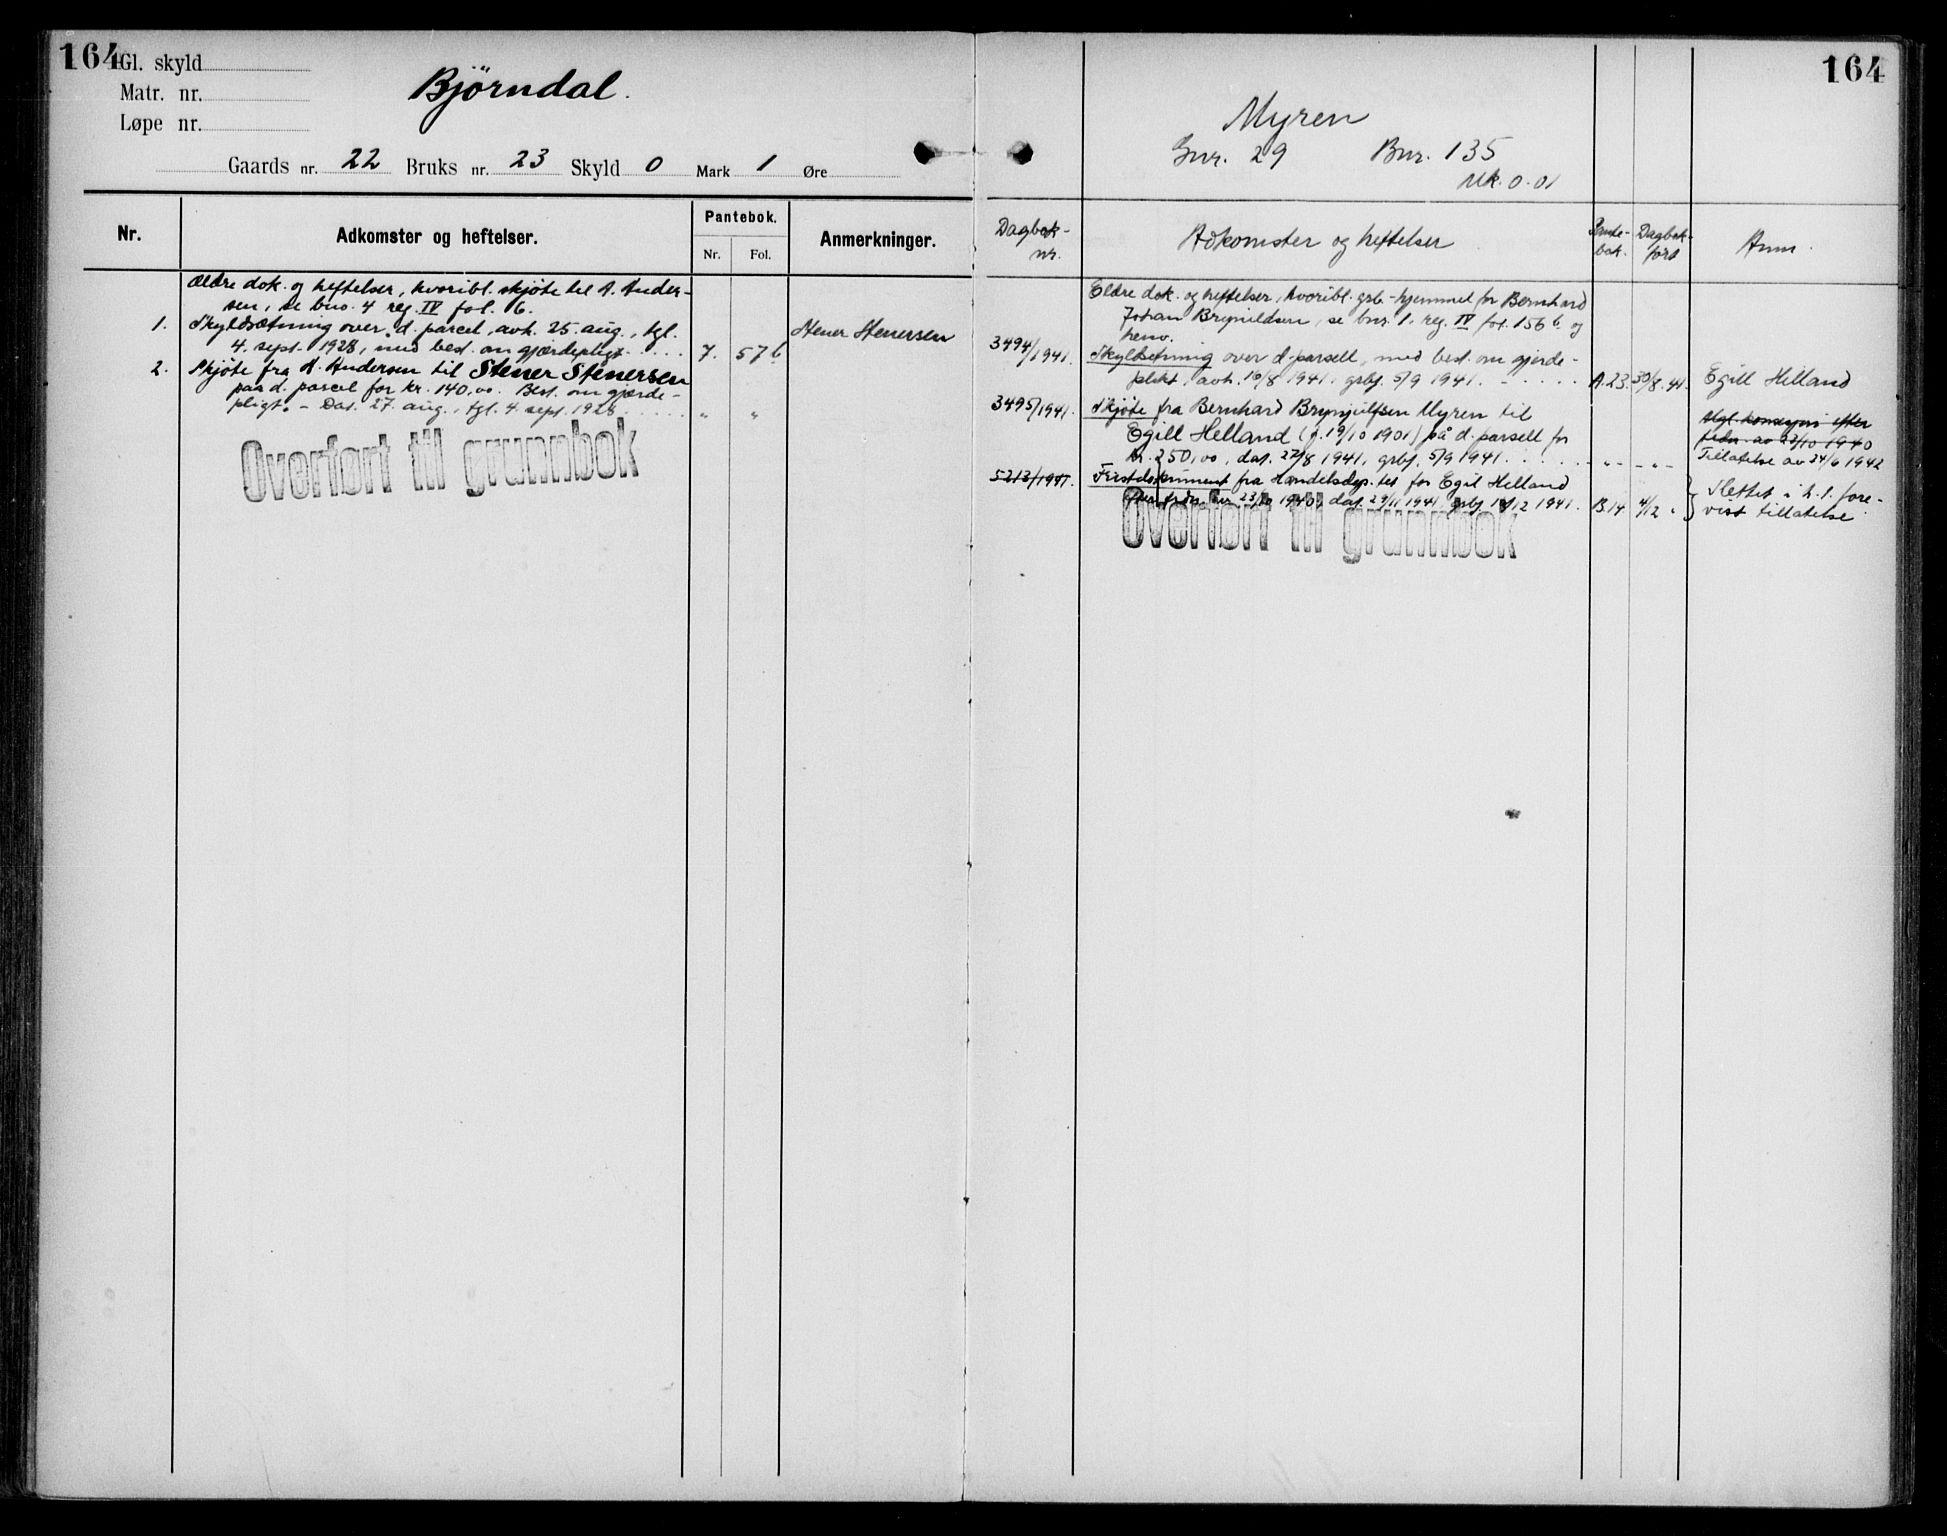 164
Gl. skyld
Matr. nr.
Løpe nr.
Björndal.
Gaards nr. 22 Bruks nr. 23 Skyld 0 Mark 1 Øre
Nr.
Adkomster og heftelser.
Pantebok.
Nr. Fol.
Anmerkninger.
Ældre dok. og heftelser, hvoribl. skjøte til A. Ander-
sen, se bno. 4 reg. IV fol. 6.
1. Skyldsætning over d. parcel, avh. 25. aug., tgl.
4. sept. 1928, med best. om gjærdepligt..... 7. 57b Stener Stenersen
2. Skjöte fra A. Andersen til Stener Stenersen
paa d. parcel for kr. 140,00. Best. om gjærde-
pligt. - Dat. 27. aug., tgl. 4. sept. 1928..... " "
Overført til grunnbok
164
Myren
Gnr. 29 Bnr. 135
Mk. 0.01
Dagbok-
nr.
Adkomster og heftelser
Pante-
bok.
Dagbok-
ført
Anm.
Eldre dok. og heftelser, hvoribl. grb.-hjemmel for Bernhard
Johan Brynildsen, se bnr. 1. reg. IV fol. 156b og
henv.
3494/1941. Skyldsetning over d. parsell, med best. om gjerde-
plikt. avh. 16/8 1941. grbf. 5/9 1941. - . . . . A.23. 30/8.41. Egill Helland
3495/1941. Skjøte fra Bernhard Brynjulfsen Myren til
Egill Helland (f. 19/10 1901) på d. parsell for
kr. 250,00, dat. 27/8 1941, grbf. 5/9 1941. . . . . . - " - - " -
Mgl. konsesjon efter
frdn. av 23/10 1940
Tillatelse av 24/6 1942
5213/1941. Fristdokument fra Handelsdep.tet for Egil Helland
frdn. av 23/10 1940, dat. 29/11 1941 grbf. 12 1941. B.14 4/12 "
Slettet i h. t. fore-
vist tillatelse
Overført til grunnbok